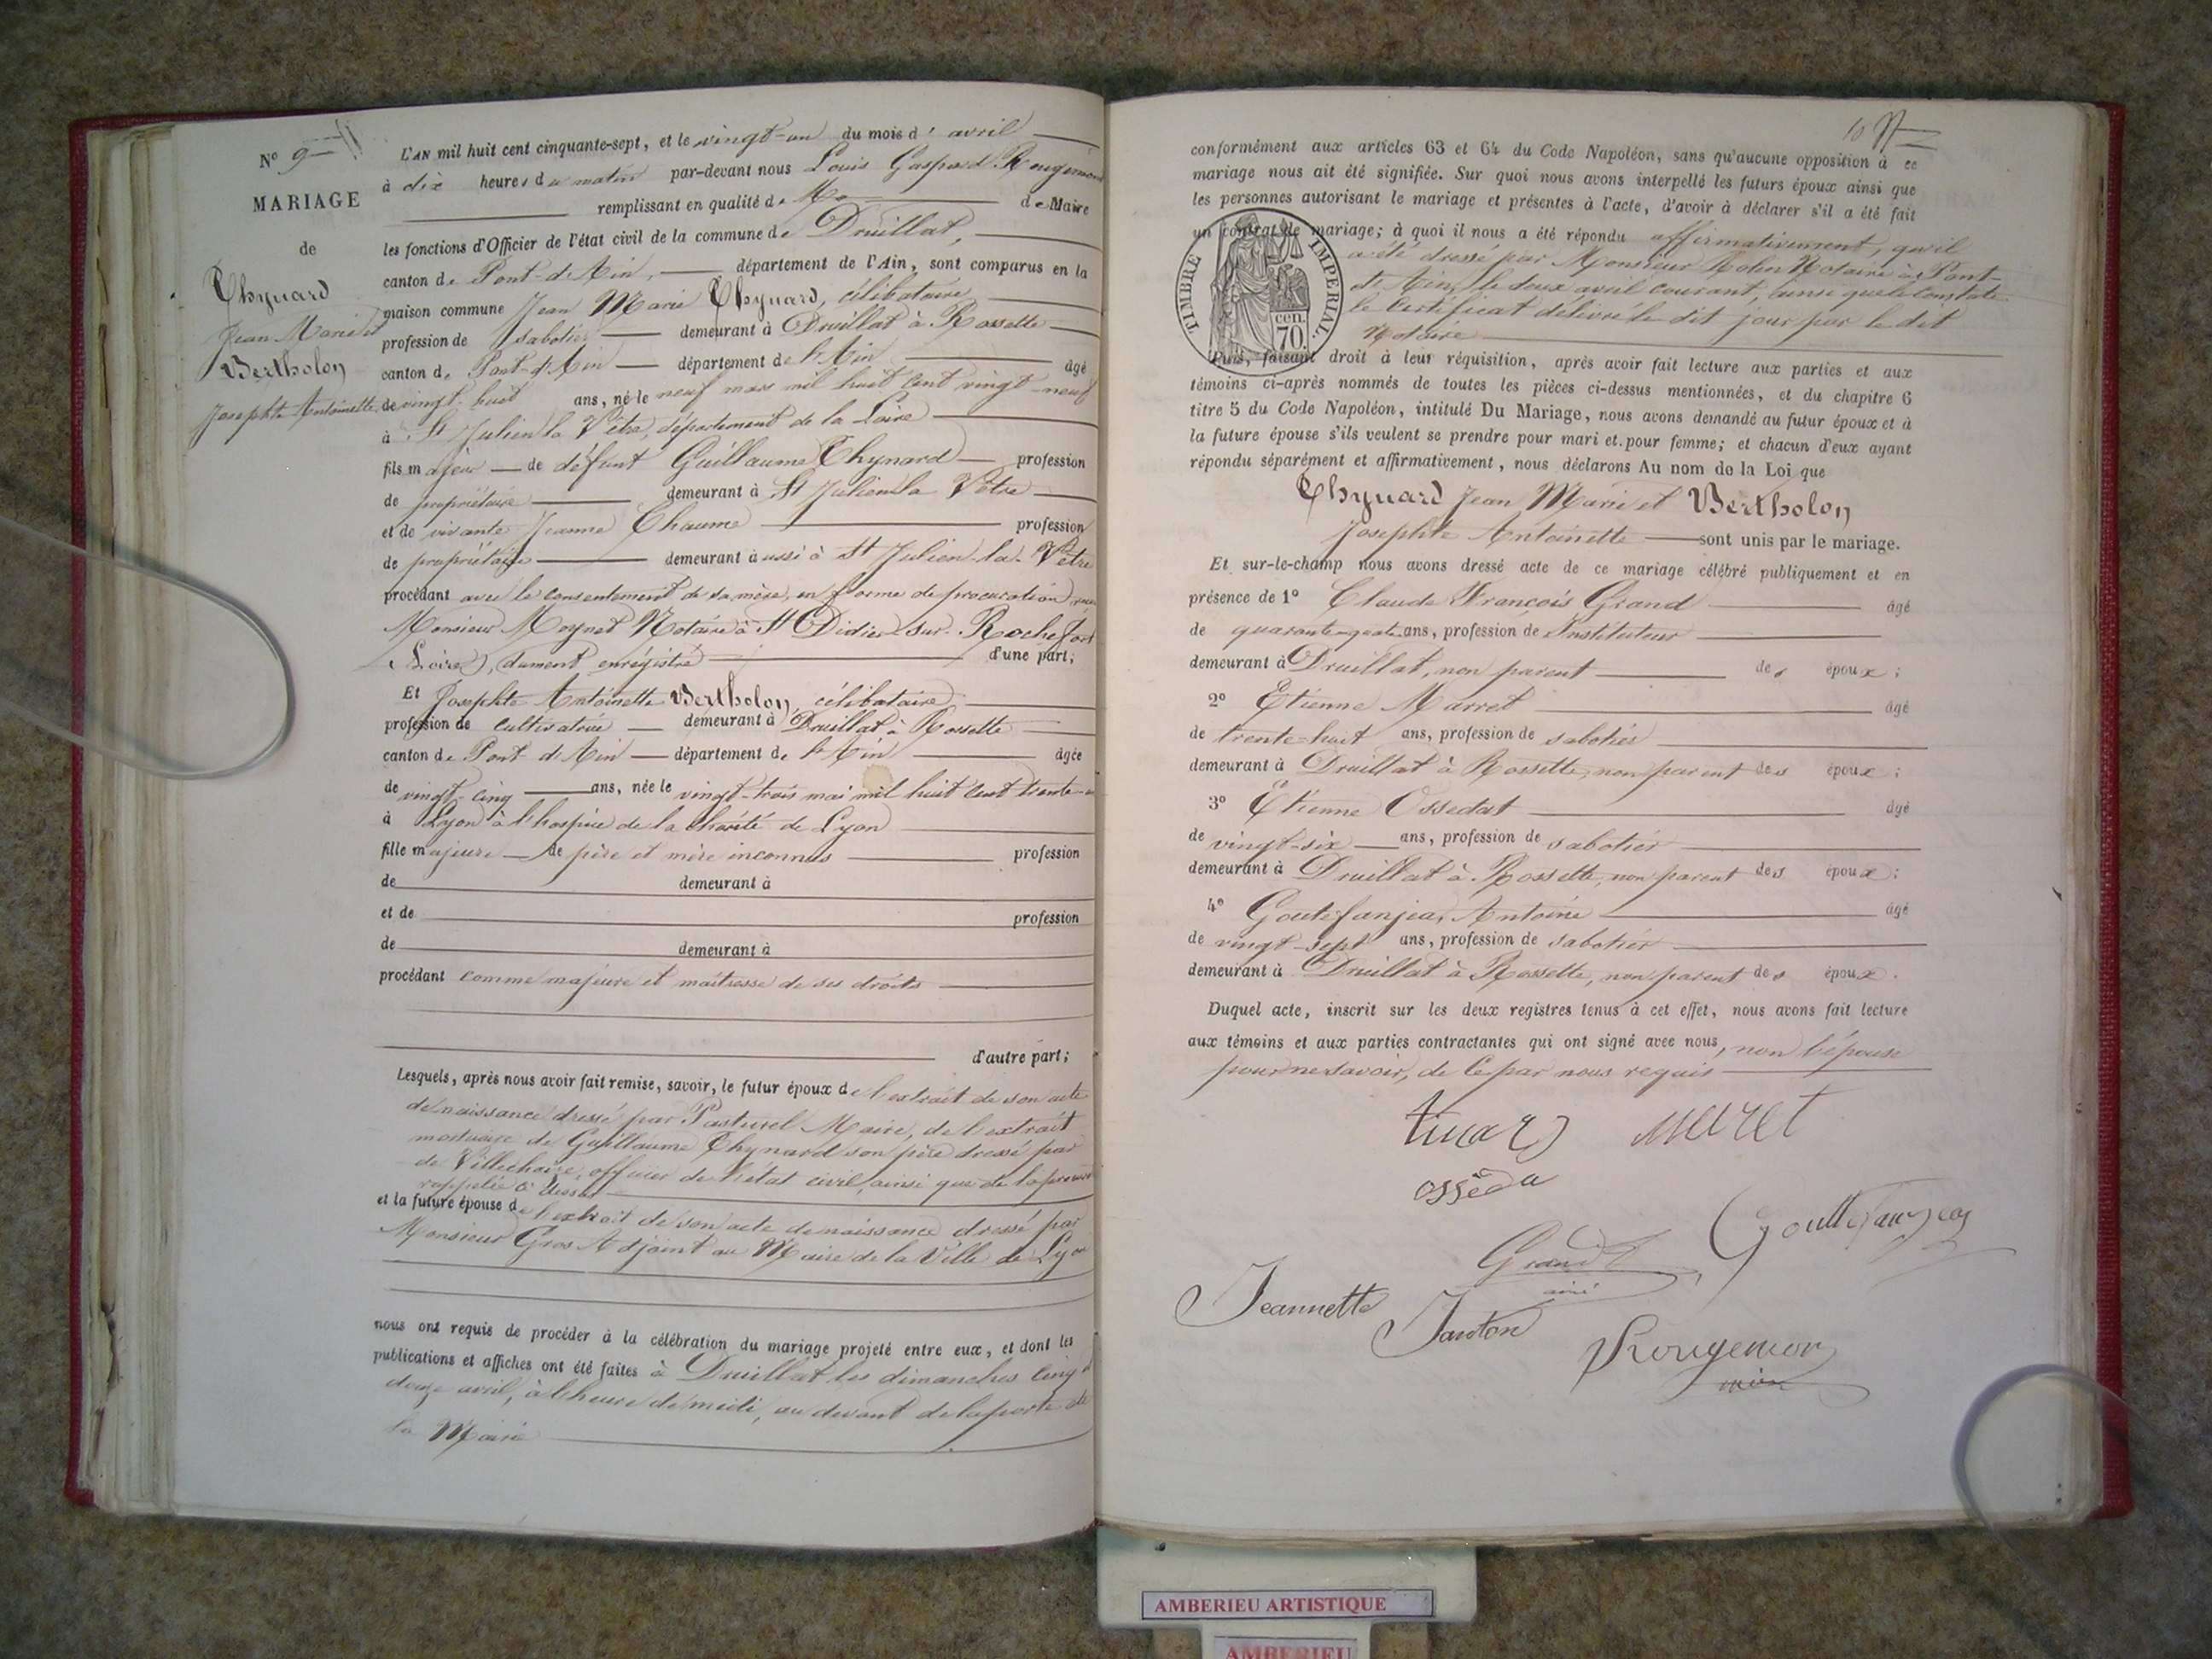 N° 9
MARIAGE
de
Thynard
Jean Marie et
Bertholon
Josephte Antoinette
L'AN mil huit cent cinquante-sept, et le vingt-un du mois d'avril
à dix heures du matin par-devant nous Louis Gaspard Rougemont
remplissant en qualité de Maire
les fonctions d'Officier de l'état civil de la commune de Druillat,
canton de Pont-d'Ain, département de l'Ain, sont comparus en la
maison commune Jean Marie Thynard, célibataire
profession de sabotier demeurant à Druillat à Rossette
canton de Pont-d'Ain département de l'Ain âgé
de vingt-huit ans, né le neuf mars mil huit cent vingt-neuf
à St Julien la Vêtre, département de la Loire
fils majeur de défunt Guillaume Thynard profession
de propriétaire demeurant à St Julien la Vêtre
et de vivante Jeanne Chaume profession
de propriétaire demeurant aussi à St Julien-la-Vêtre
procédant avec le consentement de sa mère, en forme de procuration
Monsieur Moynet Notaire à St Didier-sur-Rochefort
(Loire), dument enrégistré d'une part;
Et Josephte Antoinette Bertholon, célibataire
profession de cultivatrice demeurant à Druillat à Rossette
canton de Pont d'Ain département de l'Ain âgée
de vingt-cinq ans, née le vingt-trois mai mil huit cent trente-
à Lyon à l'hospice de la Charité de Lyon
fille majeure de père et mère inconnus profession
de demeurant à
et de profession
de demeurant à
procédant comme majeure et maîtresse de ses droits
d'autre part;
Lesquels, après nous avoir fait remise, savoir, le futur époux de l'extrait de son acte
de naissance dressé par Pasturel Maire, de l'extrait
mortuaire de Guillaume Thynard son père dressé par
de Villechaize, officier de l'état civil, ainsi que de la
rappelée ci dessus
et la future épouse de l'extrait de son acte de naissance dressé par
Monsieur Gros Adjoint au Maire de la Ville de Lyon
nous ont requis de procéder à la célébration du mariage projeté entre eux, et dont les
publications et affiches ont été faites à Druillat les dimanches cinq et
douze avril, à l'heure de midi, au devant de la porte de
la Mairie
10
conformément aux articles 63 et 64 du Code Napoléon, sans qu'aucune opposition à ce
mariage nous ait été signifiée. Sur quoi nous avons interpellé les futurs époux ainsi que
les personnes autorisant le mariage et présentes à l'acte, d'avoir à déclarer s'il a été fait
un contrat de mariage; à quoi il nous a été répondu affirmativement, qu'il
a été dressé par Monsieur Rolin Notaire à Pont-
d'Ain, le deux avril courant, ainsi que le constate
le certificat délivré le dit jour par le dit
Notaire
TIMBRE IMPERIAL
cen.
70.
Puis, faisant droit à leur réquisition, après avoir fait lecture aux parties et aux
témoins ci-après nommés de toutes les pièces ci-dessus mentionnées, et du chapitre 6
titre 5 du Code Napoléon, intitulé Du Mariage, nous avons demandé au futur époux et à
la future épouse s'ils veulent se prendre pour mari et pour femme; et chacun d'eux ayant
répondu séparément et affirmativement, nous déclarons Au nom de la Loi que
Thynard Jean Marie et Bertholon
Josephte Antoinette sont unis par le mariage.
Et sur-le-champ nous avons dressé acte de ce mariage célébré publiquement et en
présence de 1° Claude François Grand âgé
de ans, profession de Instituteur
demeurant à Druillat, non parent des époux;
2° Etienne Marret âgé
de trente-huit ans, profession de sabotier
demeurant à Druillat à Rossette, non parent des époux;
3° Etienne Ossedat âgé
de vingt-six ans, profession de sabotier
demeurant à Druillat à Rossette, non parent des époux;
4° Goutefanjea, Antoine âgé
de vingt-sept ans, profession de sabotier
demeurant à Druillat à Rossette, non parent des époux.
Duquel acte, inscrit sur les deux registres tenus à cet effet, nous avons fait lecture
aux témoins et aux parties contractantes qui ont signé avec nous, non l'épouse
pour ne savoir, de ce par nous requis
tinard maret
osseda
Gouttefangeas
Grand
ainé
Jeannette Janton
Rougemont
AMBERIEU ARTISTIQUE
AMBERIEU